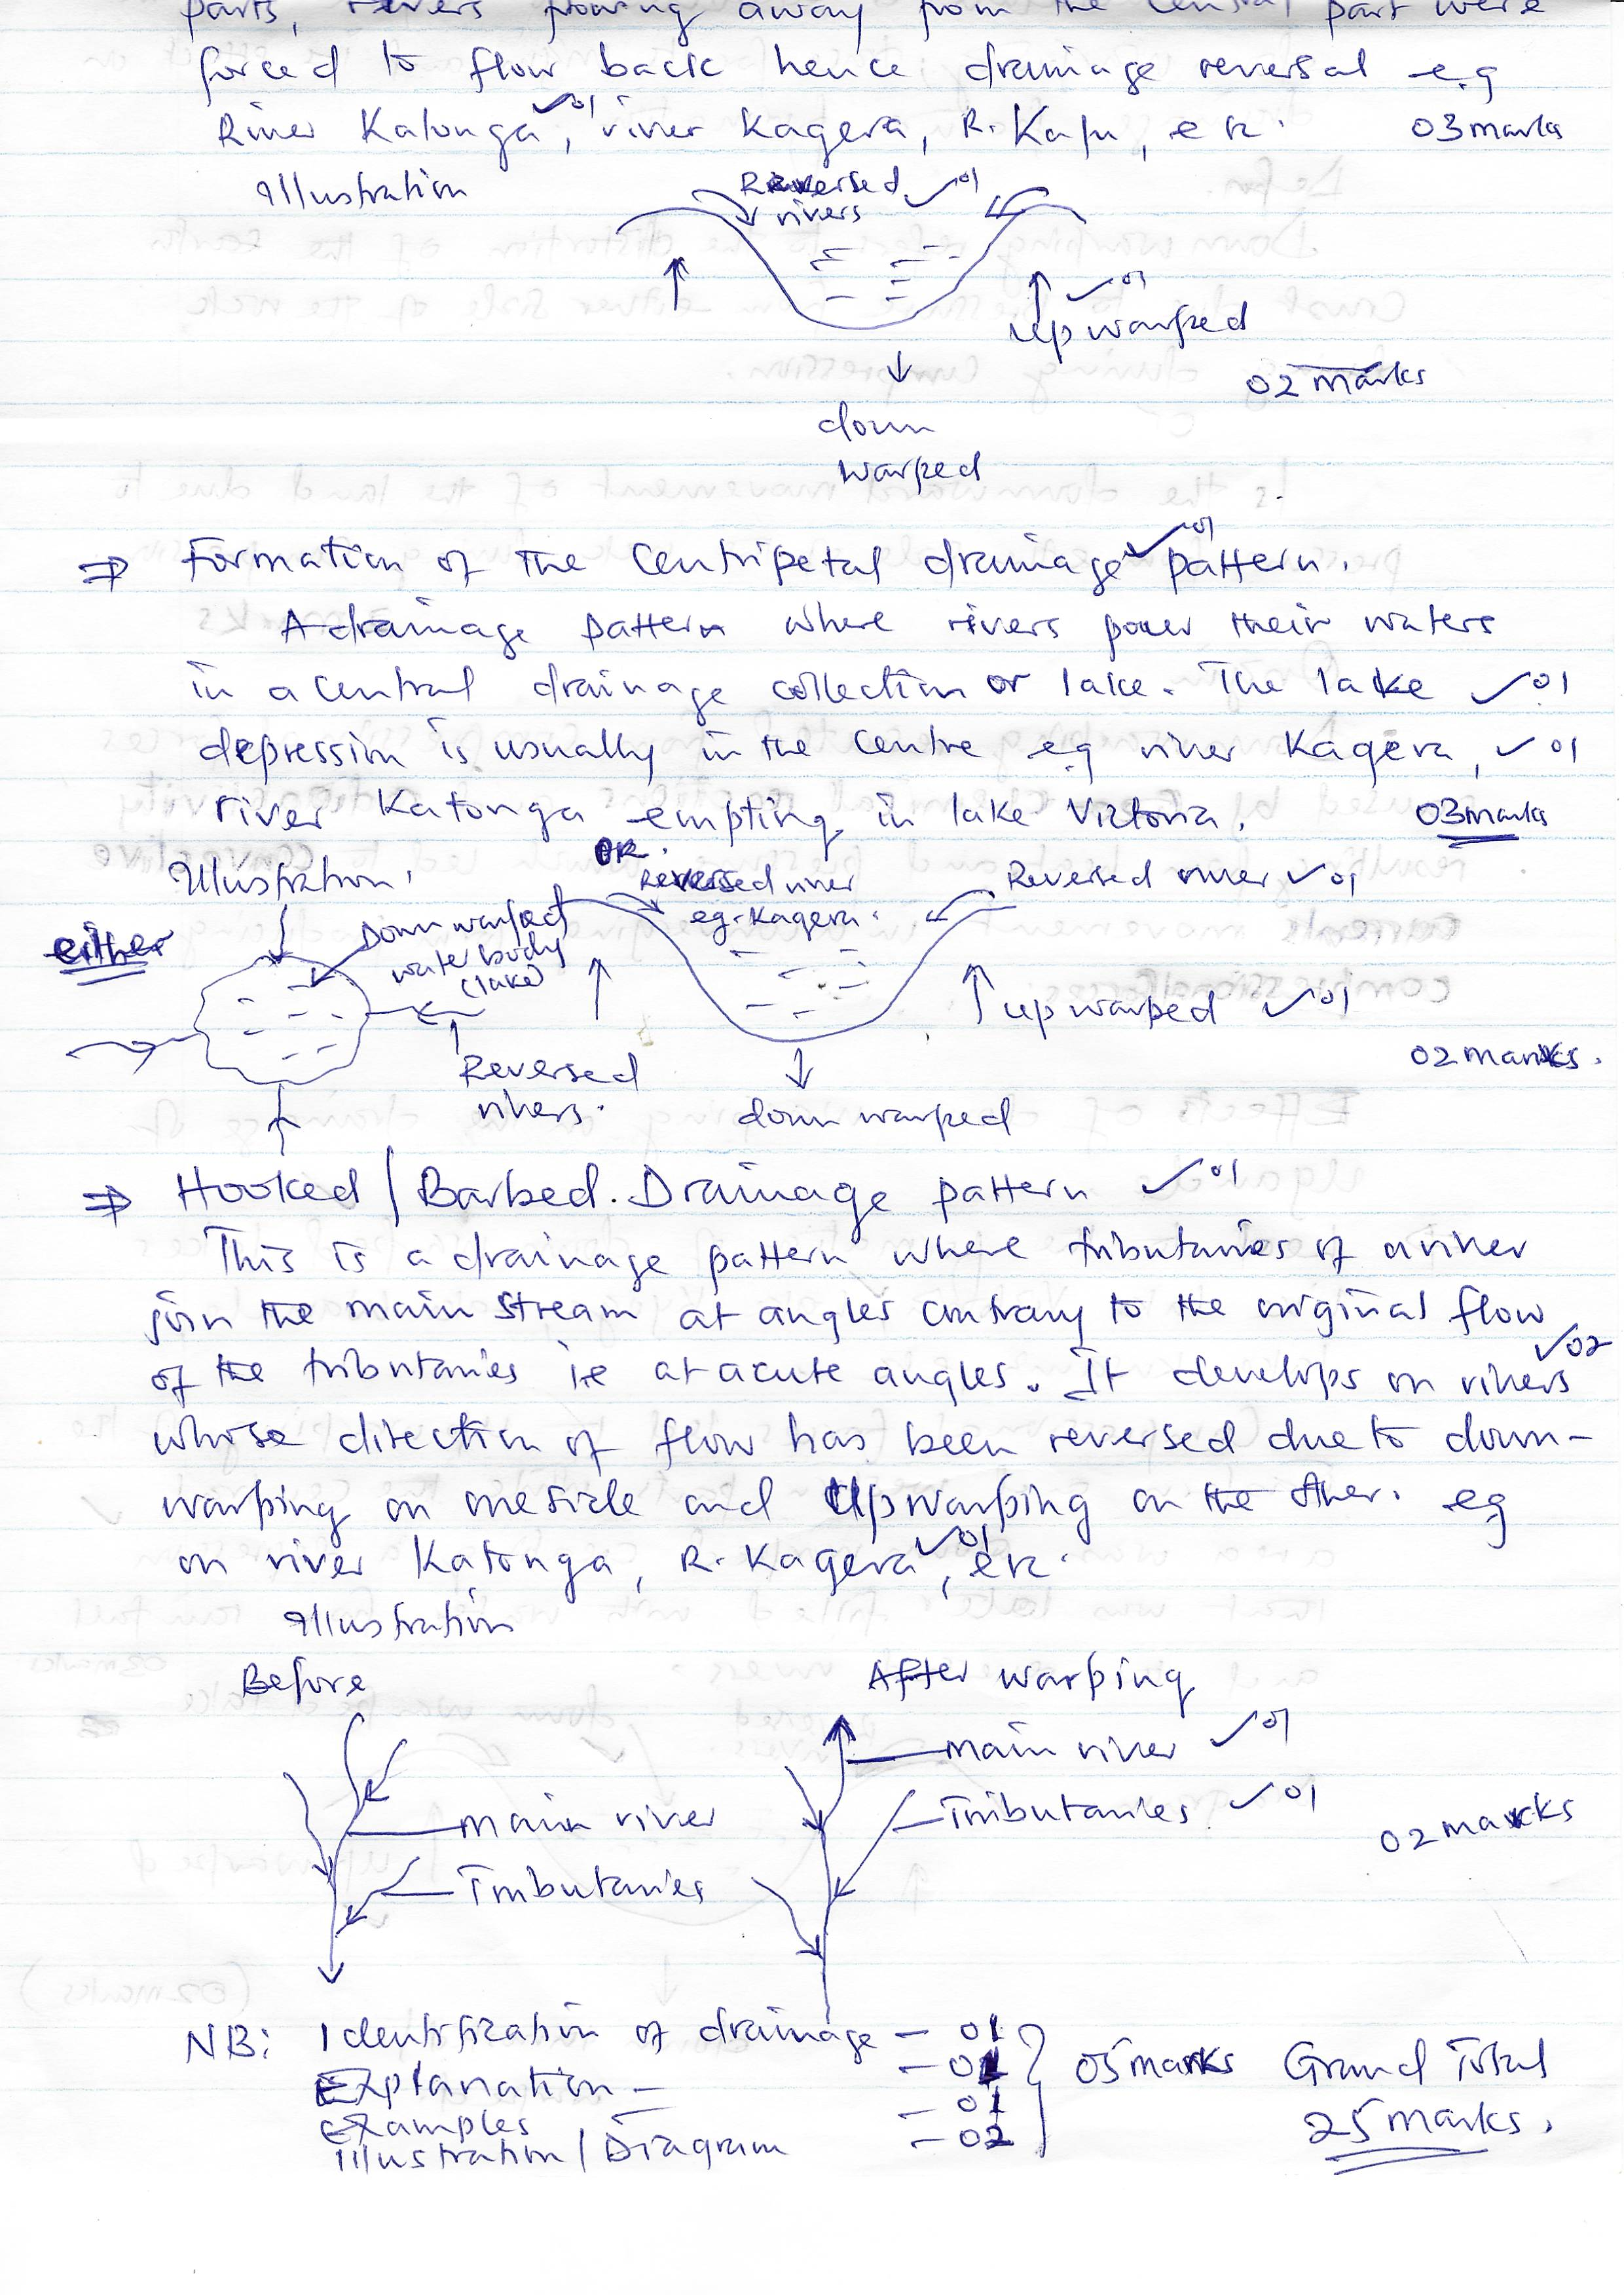 parts, rivers flowing away from the central part were
forced to flow back hence drainage reversal e.g
River Katonga ✓01, river Kagera, R. Kafu, etc. 03 marks
Illustration
Reversed ✓01
rivers
✓01
Up warped
02 marks
down
warped
⇒ Formation of the Centripetal drainage ✓01 pattern.
A drainage pattern where rivers pour their waters
in a central drainage collection or lake. The lake ✓01
depression is usually in the centre eg river Kagera, ✓01
river Katonga emptying in lake Victoria. 03 marks
Illustration.
OR.
either
Down warped
water body
(lake)
Reversed river
eg. Kagera.
Reversed river ✓01
up warped ✓01
02 marks.
Reversed
rivers.
down warped
⇒ Hooked / Barbed. Drainage pattern ✓01
This is a drainage pattern where tributaries of a river
join the main stream at angles contrary to the original flow
of the tributaries ie at acute angles. It develops on rivers ✓02
whose direction of flow has been reversed due to down-
warping on one side and Upwarping on the other. eg
on river Katonga, R. Kagera ✓01, etc.
Illustration
Before
After warping
main river ✓01
Tributaries ✓01
main river
02 marks
Tributaries
NB: Identification of drainage - 01
Explanation - - 01
examples - 01
Illustration / Diagram - 02
05 marks Grand Total
25 marks.